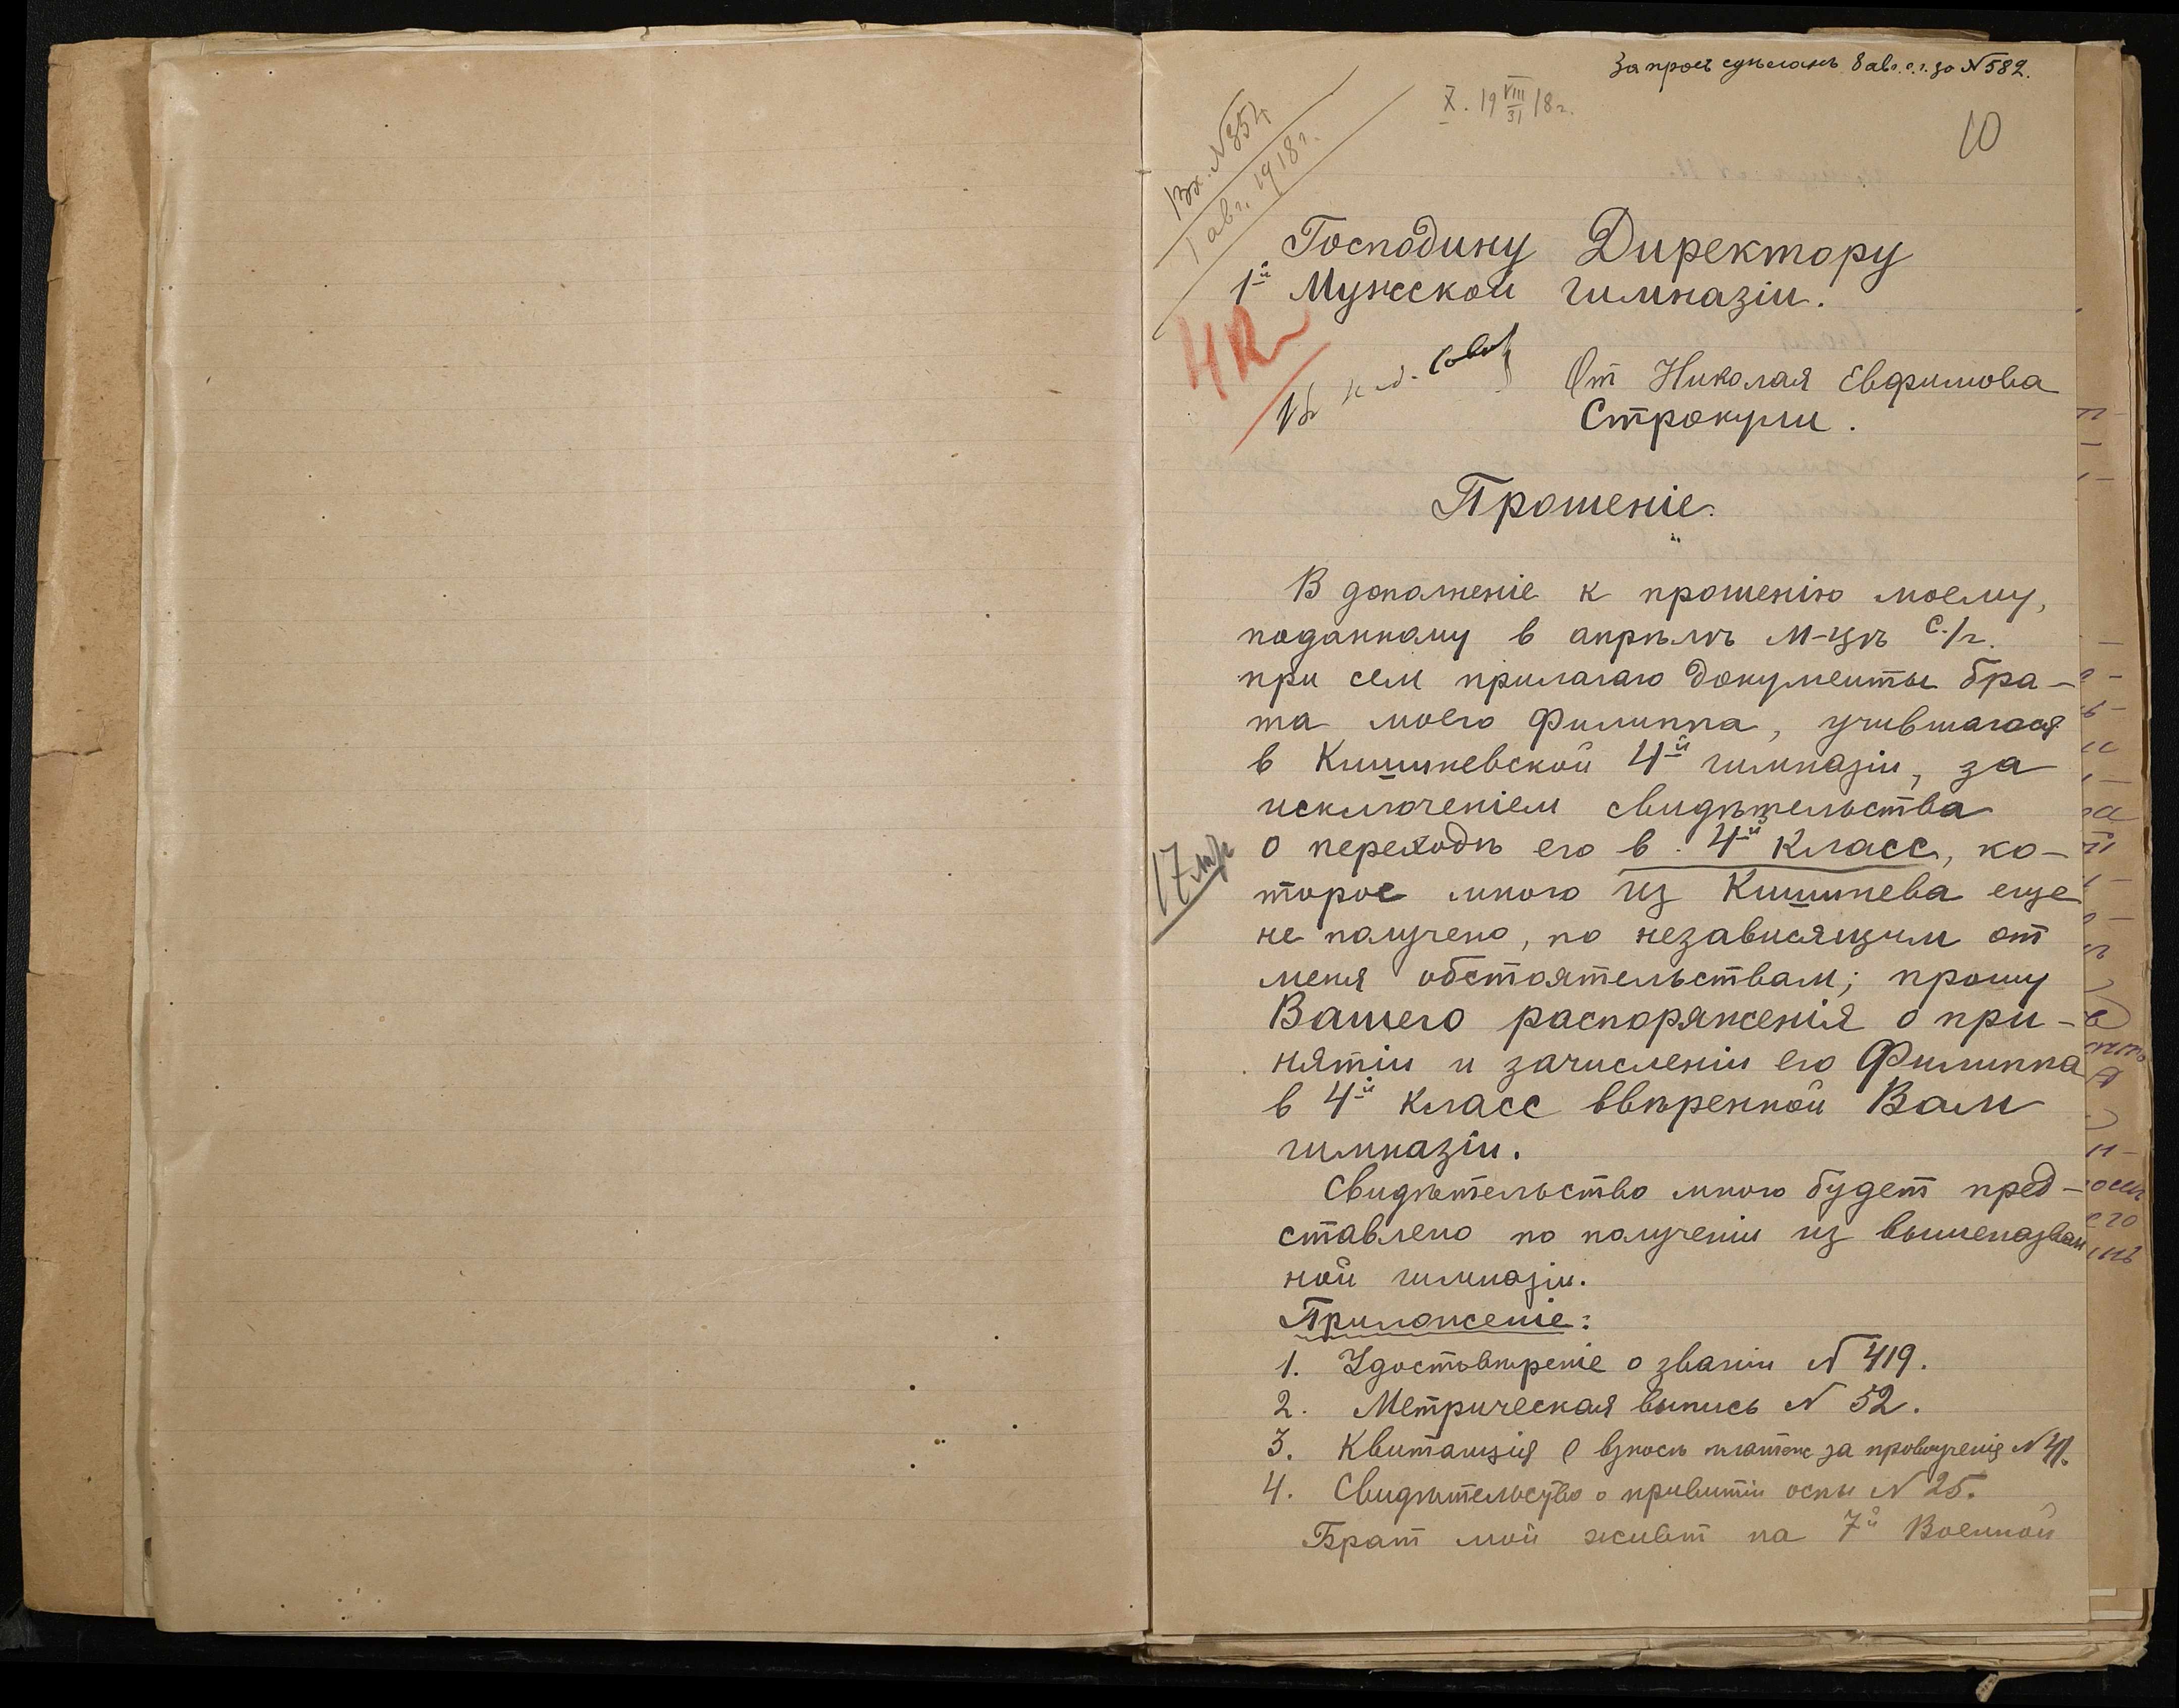 Запросъ сдѣланъ 8 авг. с.г. за №582.
X. 19 VIII/31 18 г.
10
Вх. №354
1 авг. 1918 г.
Господину Директору
1й Мужской гимназіи.
4 к
В п д. Совѣт
От Николая Евфимова
Строкули.
Прошеніе.
В дополненіе к прошенію моему,
поданному в апрѣлѣ м-цѣ с./г.
при сем прилагаю документы бра-
та моего Филиппа, учившагося
в Кишиневской 4й гимназіи, за
исключеніем свидѣтельства
о переходѣ его в 4й класс, ко-
торое мною из Кишинева еще
17
не получено, по независящим от
меня обстоятельствам; прошу
Вашего распоряженія о при-
нятіи и зачисленіи его Филиппа
в 4й класс ввѣренной Вам
гимназіи.
Свидѣтельство мною будет пред-
ставлено по полученіи из вышеназван
ной гимназіи.
Приложеніе:
1. Удостовѣреніе о званіи № 419.
2. Метрическая выпись № 52.
3. Квитанція о взносѣ платы за правоученіе № 41.
4. Свидѣтельство о привитіи оспы № 25.
Брат мой живет на 7й Военной